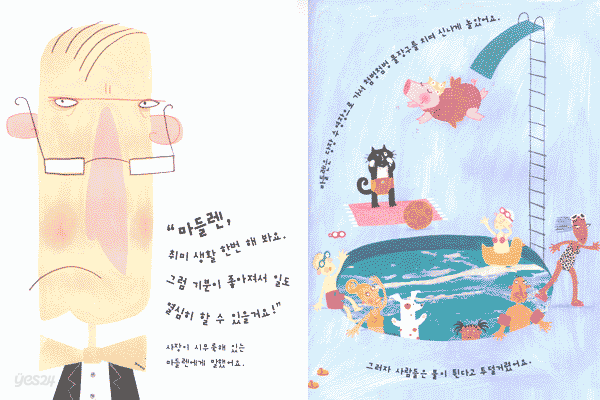 “마들렌,
취미 생활 한번 해 봐요.
그럼 기분이 좋아져서 일도
열심히 할 수 있을거요!”
사장이 시무룩해 있는
마들렌에게 말했어요.
마들렌은 당장 수영장으로 가서 첨벙첨벙 물장구를 치며 신나게 놀았어요.
그러자 사람들은 물이 튄다고 투덜거렸어요.
yes24